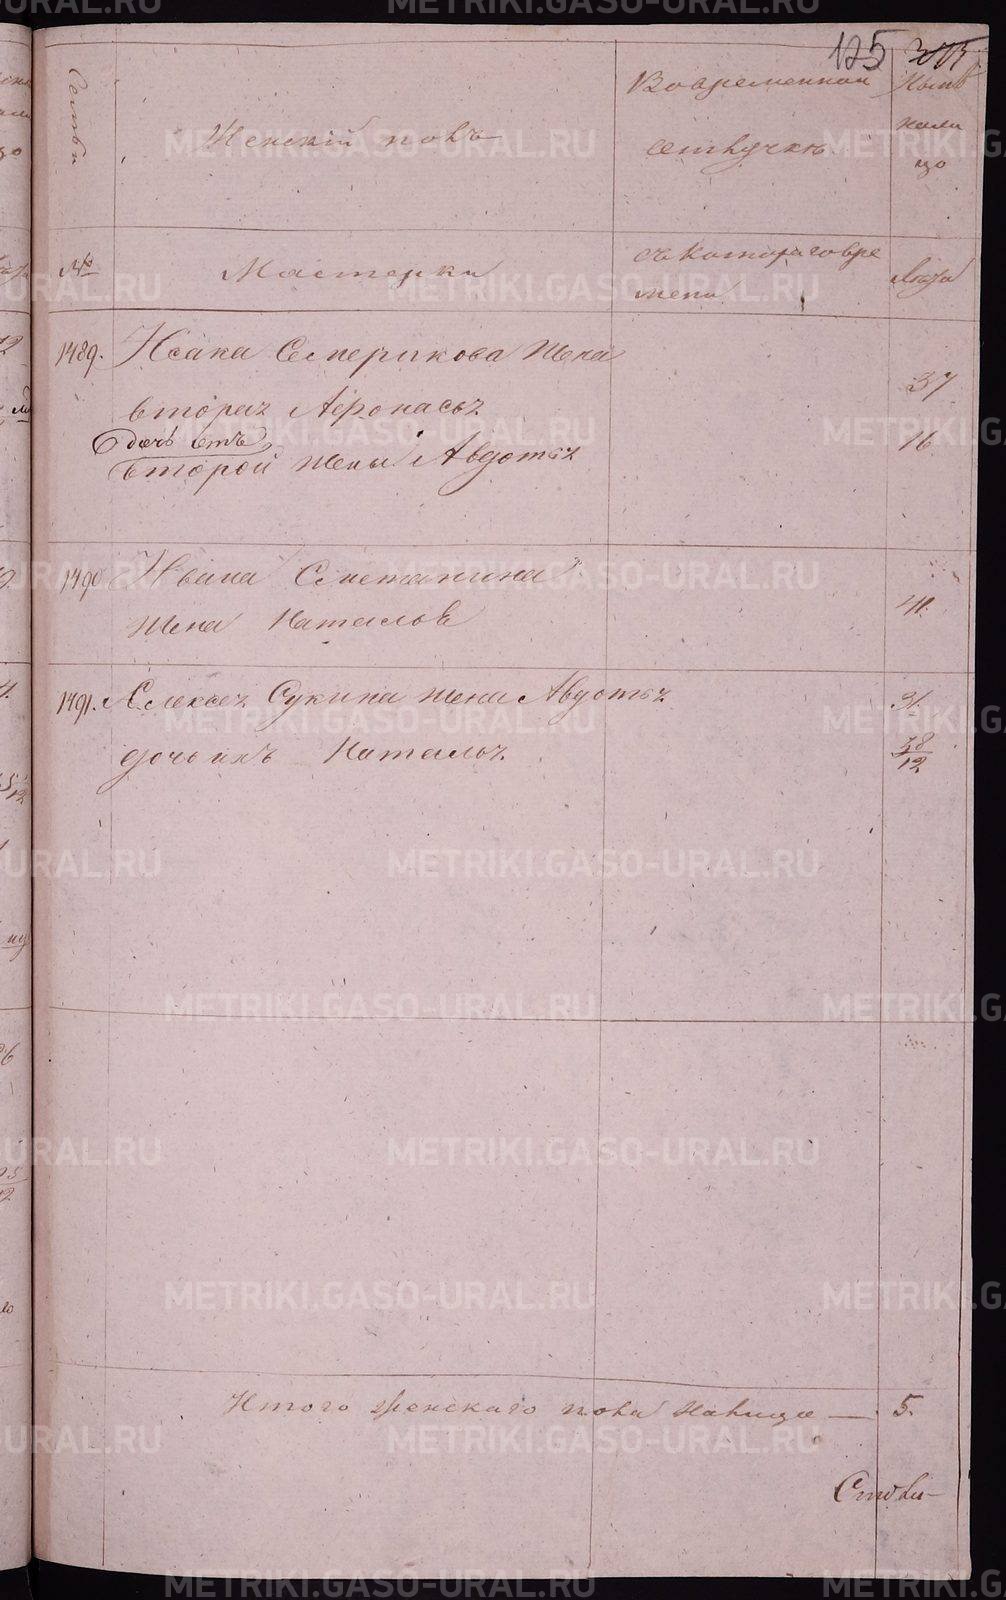 125
Семьи
Женскій полъ
Во временной
отлучкѣ
Нынѣ
на ли
цо
№
Мастерки
съ котораго вре
мени
Лѣта
1489. Исака Семерикова жена
вторая Афонасья 37
дочь отъ
второй жены Авдотья 16
1490 Ивана Сметанина
жена Наталья 41.
1491. Алексея Сукина жена Авдотья 31.
дочь ихъ Наталья
Итого женскаго пола налицо — 5.
METRIKI.GASO-URAL.RU